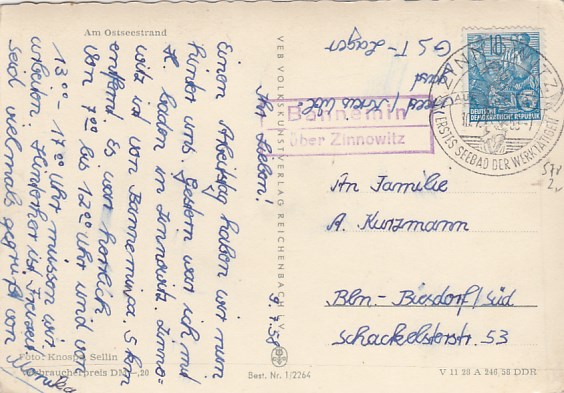 Am Ostseestrand
9.7.58
Ihr Lieben!
Einen Arbeitstag haben wir nun
hinter uns. Gestern war ich mit
H. baden in Zinnowitz. Zinno-
witz ist von Bannemin ca. 5 km
entfernt. Es war herrlich
Von 7 00 bis 12 00 Uhr und von
13 00 - 17 00 Uhr müssen wir
arbeiten. Hinterher ist Freizeit
Seid vielmals gegrüßt von Monika
GST-Lager
Bannemin
über Zinnowitz
VEB VOLKSKUNSTVERLAG REICHENBACH I. V.
10
DEUTSCHE
DEMOKRATISCHE REPUBLIK
ERSTES SEEBAD DER WERKTÄTIGEN
An Familie
A. Kurzmann
Bln.-Biesdorf/Süd
Schackelsterstr. 53
Foto: Knospe, Sellin
Verbraucherpreis DM -,20
Best. Nr. 1/2264
V 11 28 A 246 58 DDR